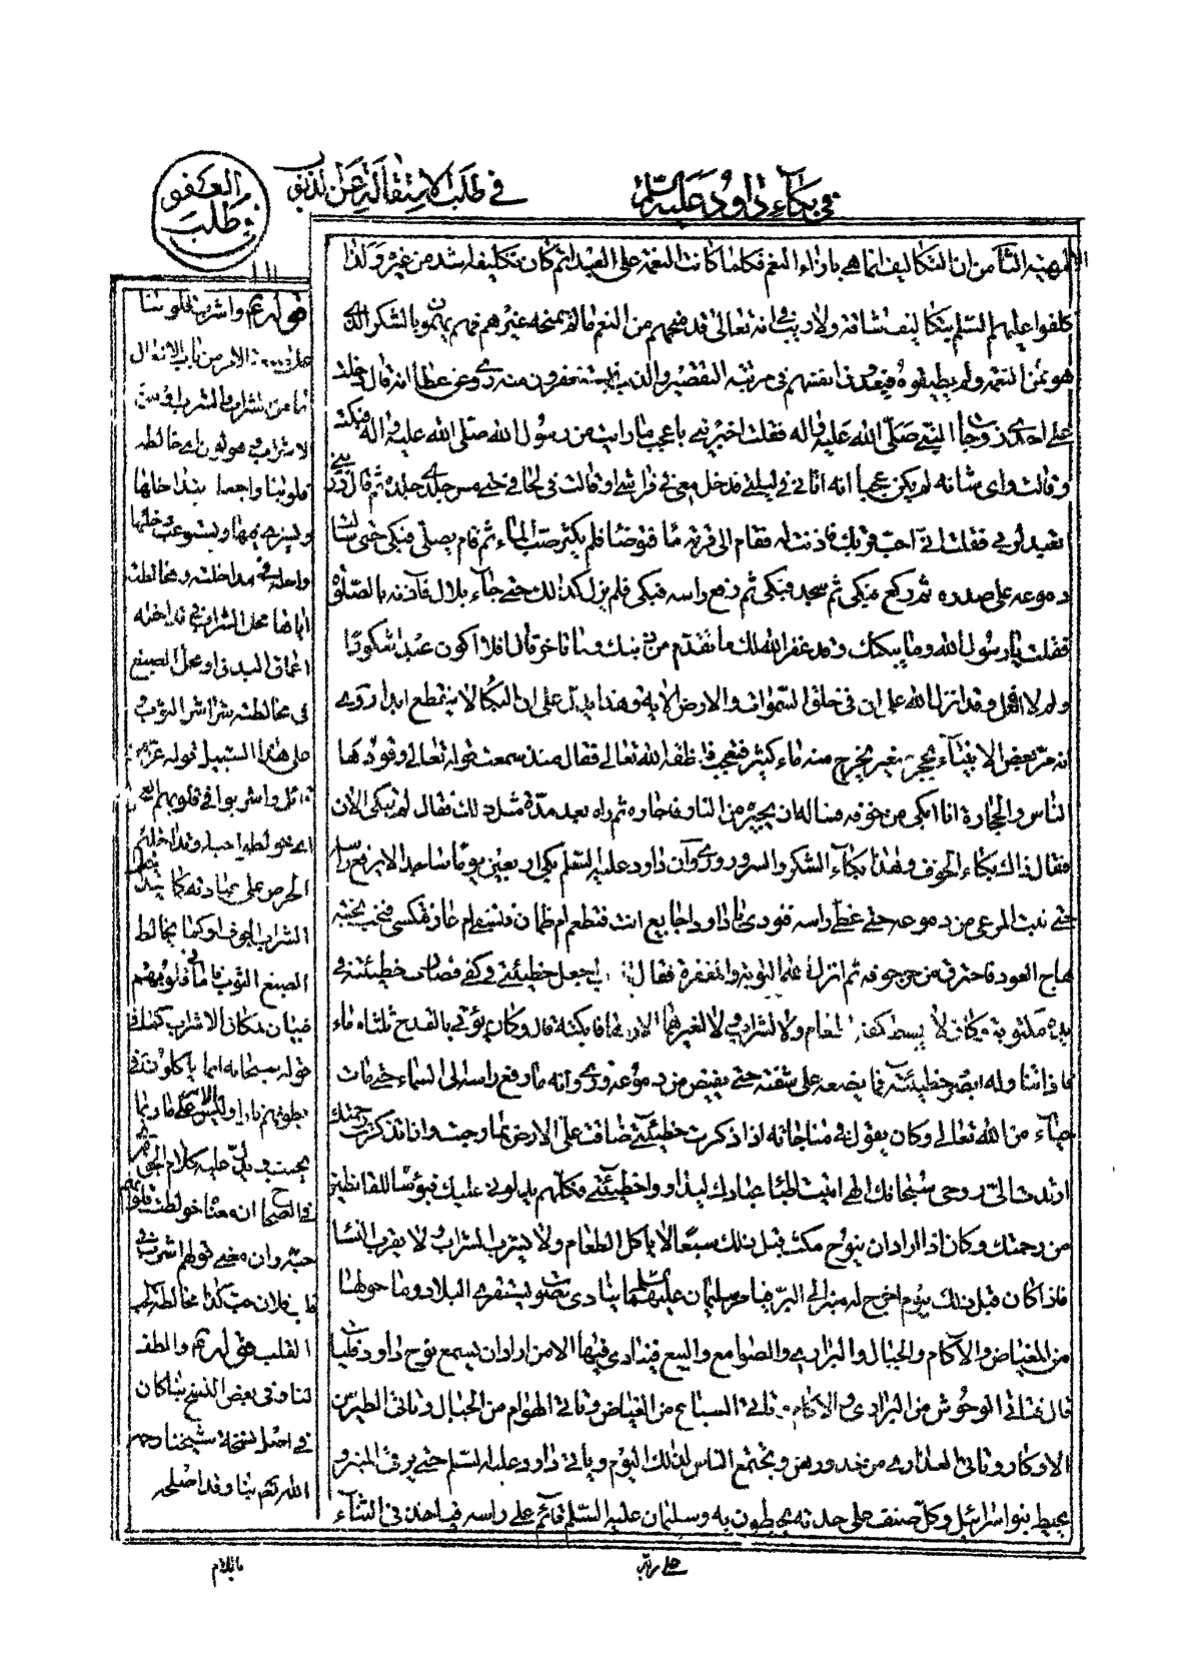 في بكاء داود عليه السلم
في طلب الاستقالة عن الذنوب
العفو
طلب
الالهية الثامن ان التكاليف انما هي بازاء النعم فكلما كانت النعمة على العبد اتم كان تكليفه اشد من غيره ولذا
كلفوا عليهم السلم بتكاليف شاقة ولا ريب في انه تعالى قد منحهم من النعم ما لم يمنحه غيرهم فهم يهتمون بالشكر الذي
هو ثمن النعمة ولم يطيقوه فيعدون انفسهم في مرتبة التقصير والذنب فيستغفرون منه روى عن عطا انه قال دخلت
على احدى زوجات النبي صلى الله عليه واله فقلت اخبريني باعجب ما رايت من رسول الله صلى الله عليه واله فبكت
وقالت واى شانه لم يكن عجبا انه اتاني في ليلتي فدخل معي في فراشي او قالت في لحافي حتى مس جلدى جلده ثم قال ذريني
اتعبد لربي فقلت اني احب قربك فاذنت له فقام الى قربة ماء فتوضا فلم يكثر صب الماء ثم قام يصلى فبكى حتى سالت
دموعه على صدره ثم ركع فبكى ثم سجد فبكى ثم رفع راسه فبكى فلم يزل كذلك حتى جاء بلال فآذنه بالصلوة
فقلت يا رسول الله وما يبكيك وقد غفر الله لك ما تقدم من ذنبك وما تاخر قال افلا اكون عبدا شكورا
ولم لا افعل وقد انزل الله على ان في خلق السموات والارض الاية وهذا يدل على ان البكا لا ينقطع ابدا روى
انه مر بعض الانبياء بحجر صغير يخرج منه ماء كثير فتعجب فانطقه الله تعالى فقال منذ سمعت قوله تعالى وقودها
الناس والحجارة انا ابكى من خوفه فساله ان يجيره من النار فاجاره ثم راه بعد مدة مثل ذلك فقال لم تبكى الان
فقال ذاك بكاء الخوف وهذا بكاء الشكر والسرور وروى ان داود عليه السلم بكى اربعين يوما ساجدا لا يرفع راسه
حتى نبت المرعى من دموعه حتى غطى راسه فنودى يا داود اجايع انت فتطعم ام ظمان فتسقى ام عار فتكسى فنحب نحبة
هاج العود فاحترق من حر جوفه ثم انزل الله عليه التوبة والمغفرة فقال يا رب اجعل خطيئتي في كفي فصارت خطيئته في
يده مكتوبة فكان لا يبسط كفه لطعام ولا لشراب ولا لغيرهما الا راها فابكته قال وكان يؤتى بالقدح ثلثاه ماء
فاذا تناوله ابصر خطيئته فما يضعه على شفته حتى يفيض من دموعه وروى انه ما رفع راسه الى السماء حتى مات
حياء من الله تعالى وكان يقول في مناجاته اذا ذكرت خطيئتي ضاقت على الارض بما رحبت واذا تذكرت رحمتك
ارتدت الي روحى سبحانك الهى اتيت اطباء عبادك ليداووا خطيئتي فكلهم يدلوني عليك فبؤسا للقانطين
من رحمتك وكان اذا اراد ان ينوح مكث قبل ذلك سبعا لا ياكل الطعام ولا يشرب الشراب ولا يقرب النسا
فاذا كان قبل ذلك بيوم اخرج له منبر الى البر فيامر سليمان عليهما السلم مناديا ينادى بصوت يستقرى البلاد وما حولها
من الغياض والآكام والجبال والبرارى والصوامع والبيع فينادى فيها الا من اراد ان يسمع نوح داود فليات
قال فتاتي الوحوش من البرارى والاكام وتاتي السباع من الغياض وتاتي الهوام من الجبال وتاتى الطير من
الاوكار وتاتى العذارى من خدورهن ويجتمع الناس لذلك اليوم وياتي داود عليه السلم حتى يرقى المنبر و
يحيط بنو اسرائيل وكل صنف على حدته يحيطون به وسليمان عليه السلم قائم على راسه فياخذ في الثناء
على ربه
قوله ع واشرب قلوبنا
الامر من باب الافعال
اما من الشراب والشرب او من
الاشراب وهو لون اى خالطه
قلوبنا واجعله بتداخلها
ويستوعب دخلها
مداخلته ومخالطته
اياها محل الشراب في تداخله
اعماق البدن او محل الصبغ
في مخالطته شراشر الثوب
على هذا السبيل قوله عز من
قائل واشربوا في قلوبهم العجل
الحرص على عبادته كما يتداخل
الشراب الجوف او كما يخالط
الصبغ الثوب ما في قلوبهم
فبيان مكان الاشراب كما في
قوله سبحانه انما ياكلون في
بطونهم نارا وليس الامر على ما ربما
عليه كلام الجوهرى
في الصحاح انه معناه خالطت قلوبهم
حبه وان معنى قولهم اشرب في
قلب فلان حب كذا مخالطة الحب
القلب قوله ع والطف
لنا وفي بعض النسخ بنا كان
في اصل نسخة شيخنا رحمه
الله ثم بنا وقد اصلحه